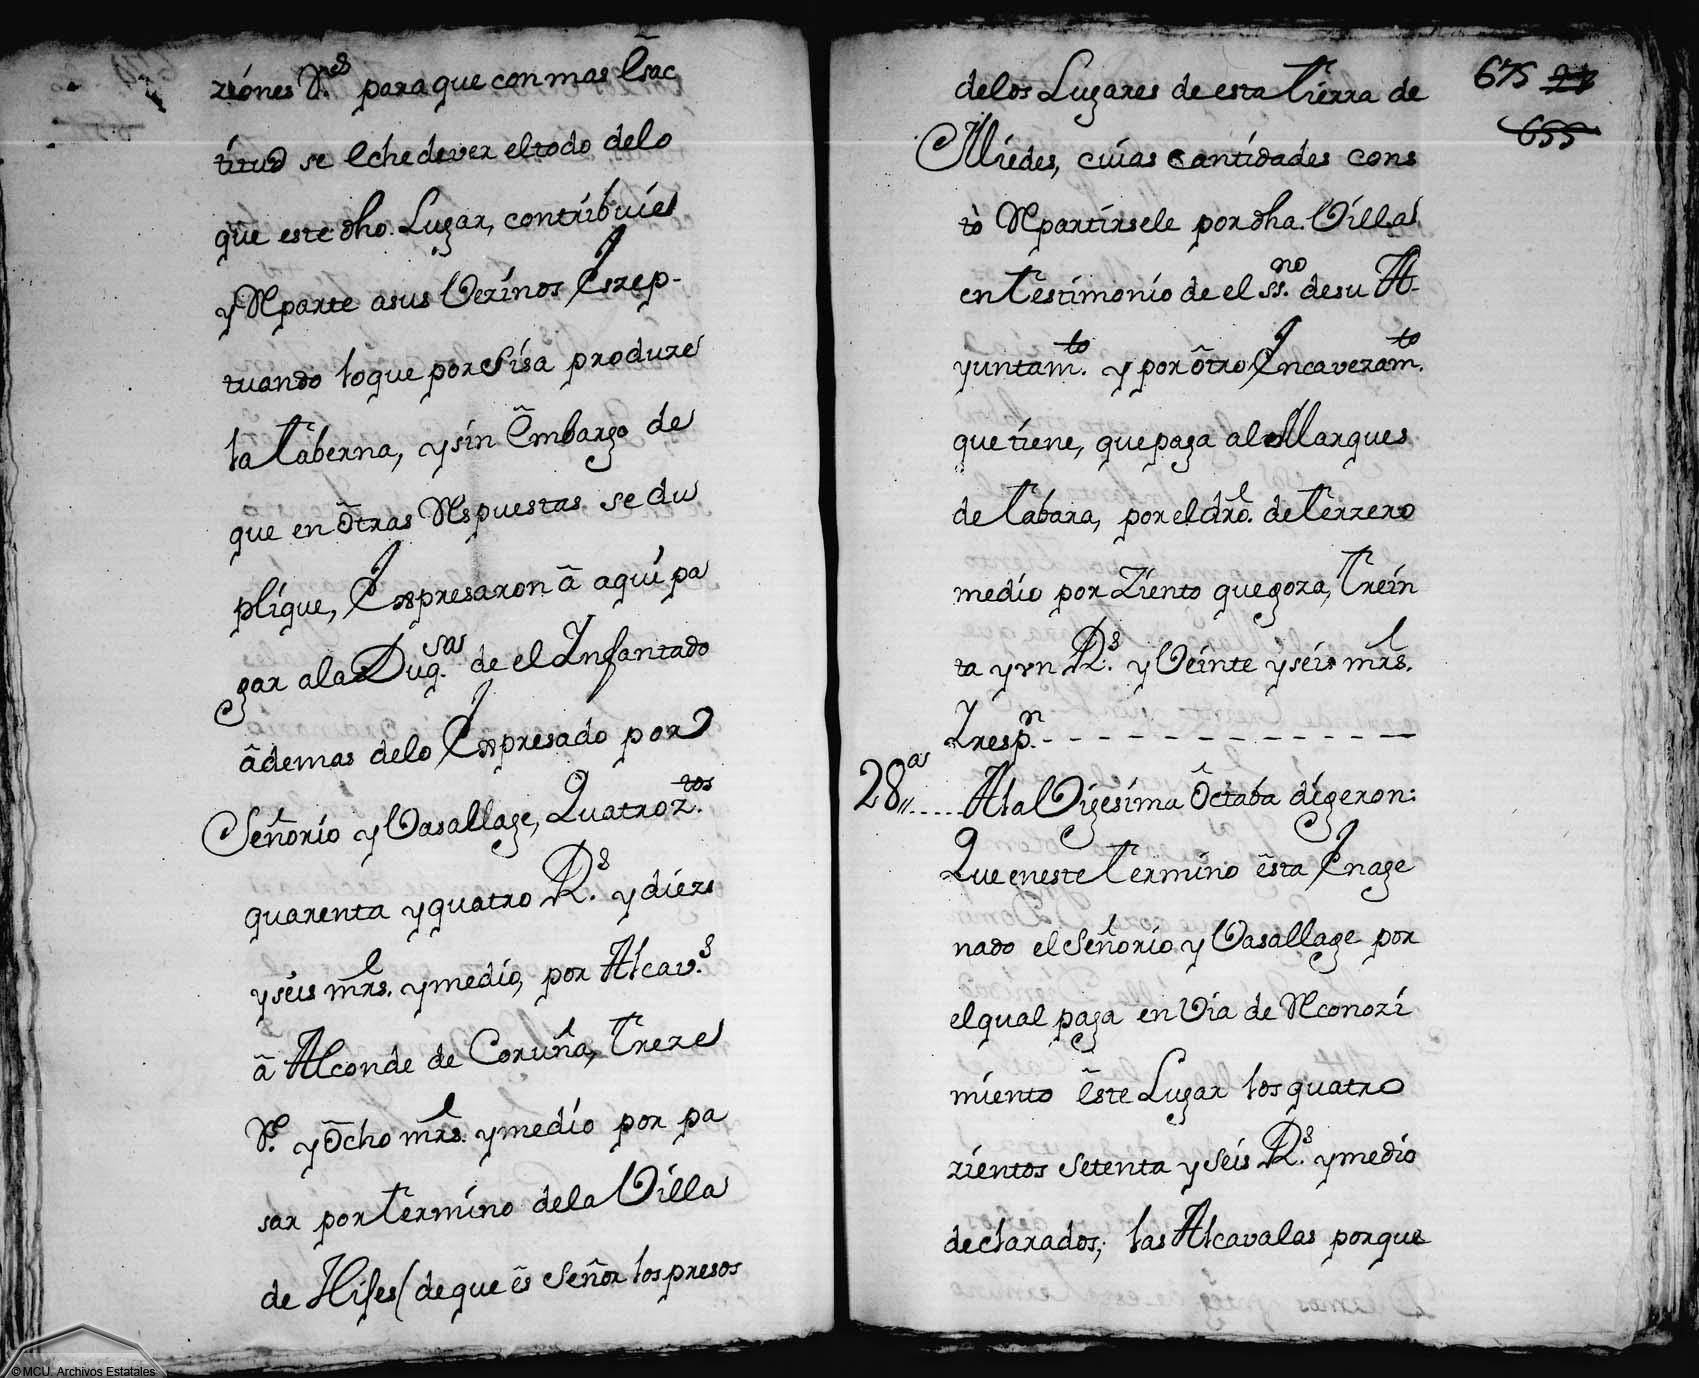 ziónes R.es para que con mas Esac
titud se Eche de ver el todo de lo
que este dho. Lugar, contribuie
y Reparte a sus Vezinos Eszep-
tuando lo que por Sisa produze
la Taberna, y sin Embargo de
que en Otras Respuestas se du
plique, Expresaron â aqui pa
gar a la Duq.sa de el Infantado
âdemas de lo Expresado por
Señorio y Vasallage, Quatroz.tos
quarenta y quatro R.s y diezs
y seis mrs. y medio, por Alcav.s
â Al conde de Coruña, Treze
R.s y Ocho mrs. y medio por pa
sar por Termino de la Villa
de Hijes (de que ês Señor los presos
de los Lugares de esta Tierra de
Miedes, cuias Cantidades cons
tò Repartirsele por dha. Villa
en Testimonio de el ss.no de su A-
yuntam.to y por ôtro Encavezam.to
que tiene, que paga al Marques
de Tabara, por el dro. de Terzero
medio por Ziento que goza, Trein
ta y vn R.s y Veinte y seis mrs.
Iresp.n
28,,a
A la Vigesima Octaba digeron:
Que en este Termino êsta Enage
nado el Señorio y Vasallage por
el qual paga en Via de Reconozi
miento êste Lugar los quatro
zientos setenta y seis R.s y medio
declarados; las Alcavalas porque
675 27
655
© MCU. Archivos Estatales